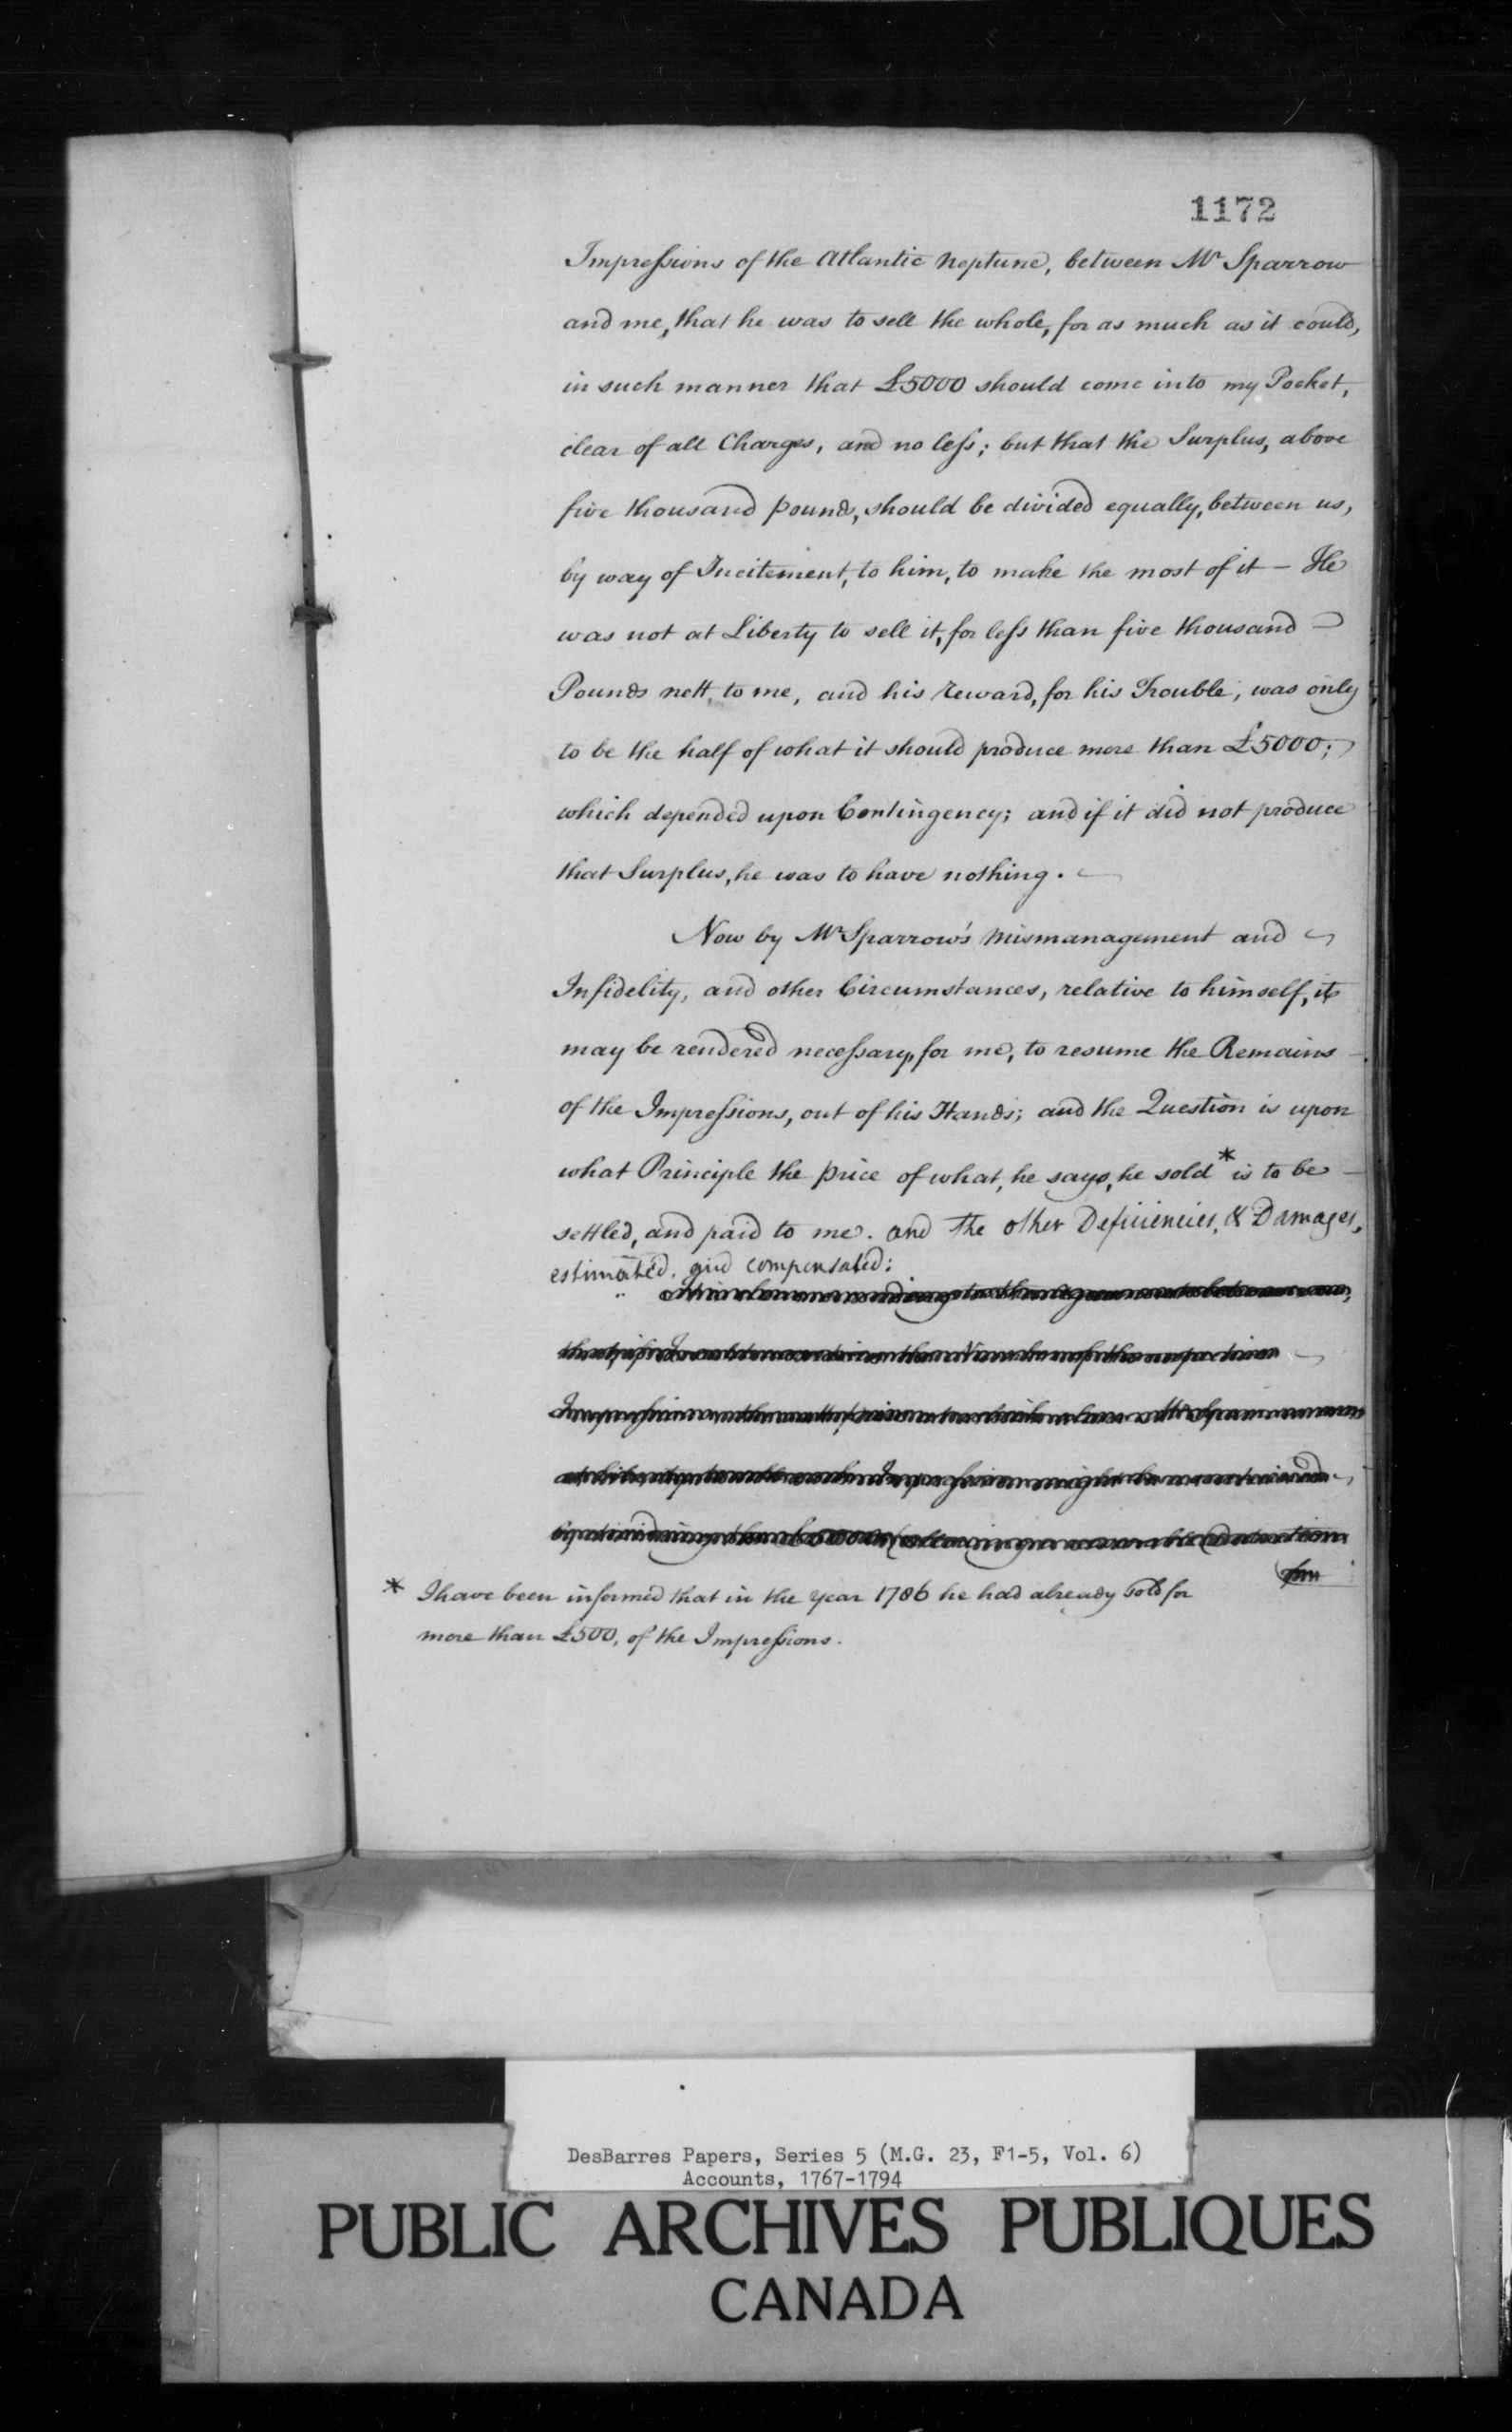 1172
Impressions of the Atlantic Neptune, between Mr Sparrow
and me, that he was to sell the whole, for as much as it could,
in such manner that £5000 should come into my Pocket,
clear of all Charges, and no less; but that the Surplus, above
five thousand pounds, should be divided equally, between us,
by way of Incitement, to him, to make the most of it – He
was not at Liberty to sell it, for less than five thousand
Pounds nett, to me, and his reward, for his Trouble, was only
to be the half of what it should produce more than £5000;
which depended upon Contingency; and if it did not produce
that Surplus, he was to have nothing.
Now by Mr Sparrow's Mismanagement and
Infidelity, and other Circumstances, relative to himself, it
may be rendered necessary, for me, to resume the Remains
of the Impressions, out of his Hands; and the Question is upon
what Principle the price of what, he says, he sold * is to be
settled, and paid to me. and the other Deficiencies, & Damages,
estimated, and compensated:
* I have been informed that in the year 1786 he had already sold for
more than £500, of the Impressions.
DesBarres Papers, Series 5 (M.G. 23, F1-5, Vol. 6)
Accounts, 1767-1794
PUBLIC ARCHIVES PUBLIQUES
CANADA